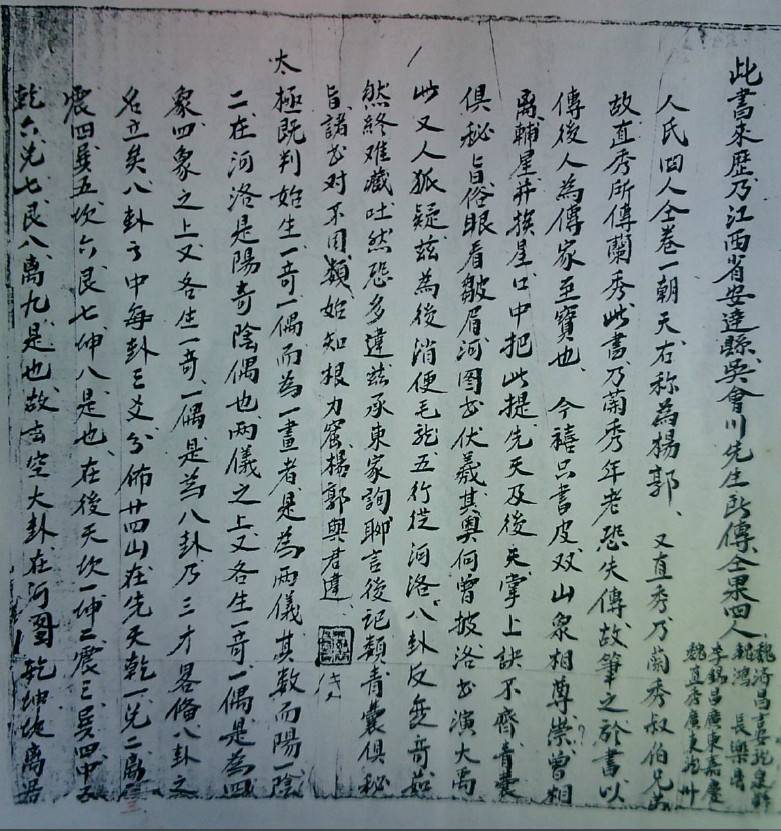 此書來歷乃江西省安達縣吳會川先生所傳仝果四人
魏鴻 長樂
李錫昌廣東嘉慶
魏直秀廣東龍卅
人氏四人仝卷一朝天右称為楊郭、又直秀乃蘭秀叔伯兄弟
故直秀所傳蘭秀此書乃蘭秀年老恐失傳故筆之於書以
傳後人為傳家至寶也、今禧只書皮双山衆相尊崇曾相
離輔星并挨星口中把此提先天及後天掌上訣不齊青囊
俱秘旨俗眼看皺眉河图出伏羲其奧何曾披洛出演大禹
此又人狐疑兹為後消便毛龍五行從河洛八卦反無奇茹
然終难藏吐然恐多違兹承東家詢聊言後記類青囊俱秘
旨諸出对不用類始知根力窩楊郭與君違、
太極既判始生一奇一偶而為一畫者是為兩儀其数而陽一陰
二在河洛是陽奇陰偶也兩儀之上又各生一奇一偶是為四
象四象之上又各生一奇一偶是為八卦乃三才畧脩八卦之
名立矣八卦之中每卦三爻分佈廿四山在先天乾一兌二离三
震四巽五坎六艮七坤八是也、在後天坎一坤二震三巽四中五
乾六兌七艮八离九是也故玄空大卦在河圖乾坤坎离居